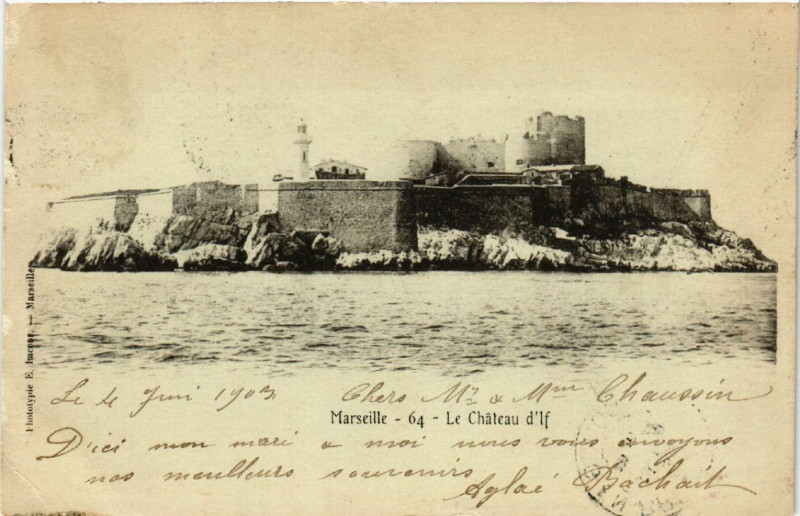 Phototypie E. Lacour. — Marseille
Le 4 Juin 1903 Chers Mr & Mme Chaussin
Marseille - 64 - Le Château d'If
D'ici mon mari & moi nous vous envoyons
nos meilleurs souvenirs
Aglaé Rachait